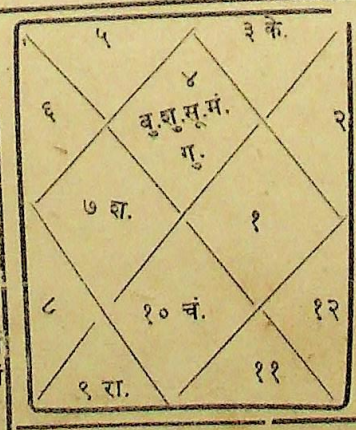 ५
३ के.
४
६
बु.शु.सू.मं.
२
गु.
७ श.
१
८
१० चं.
१२
९ रा.
११